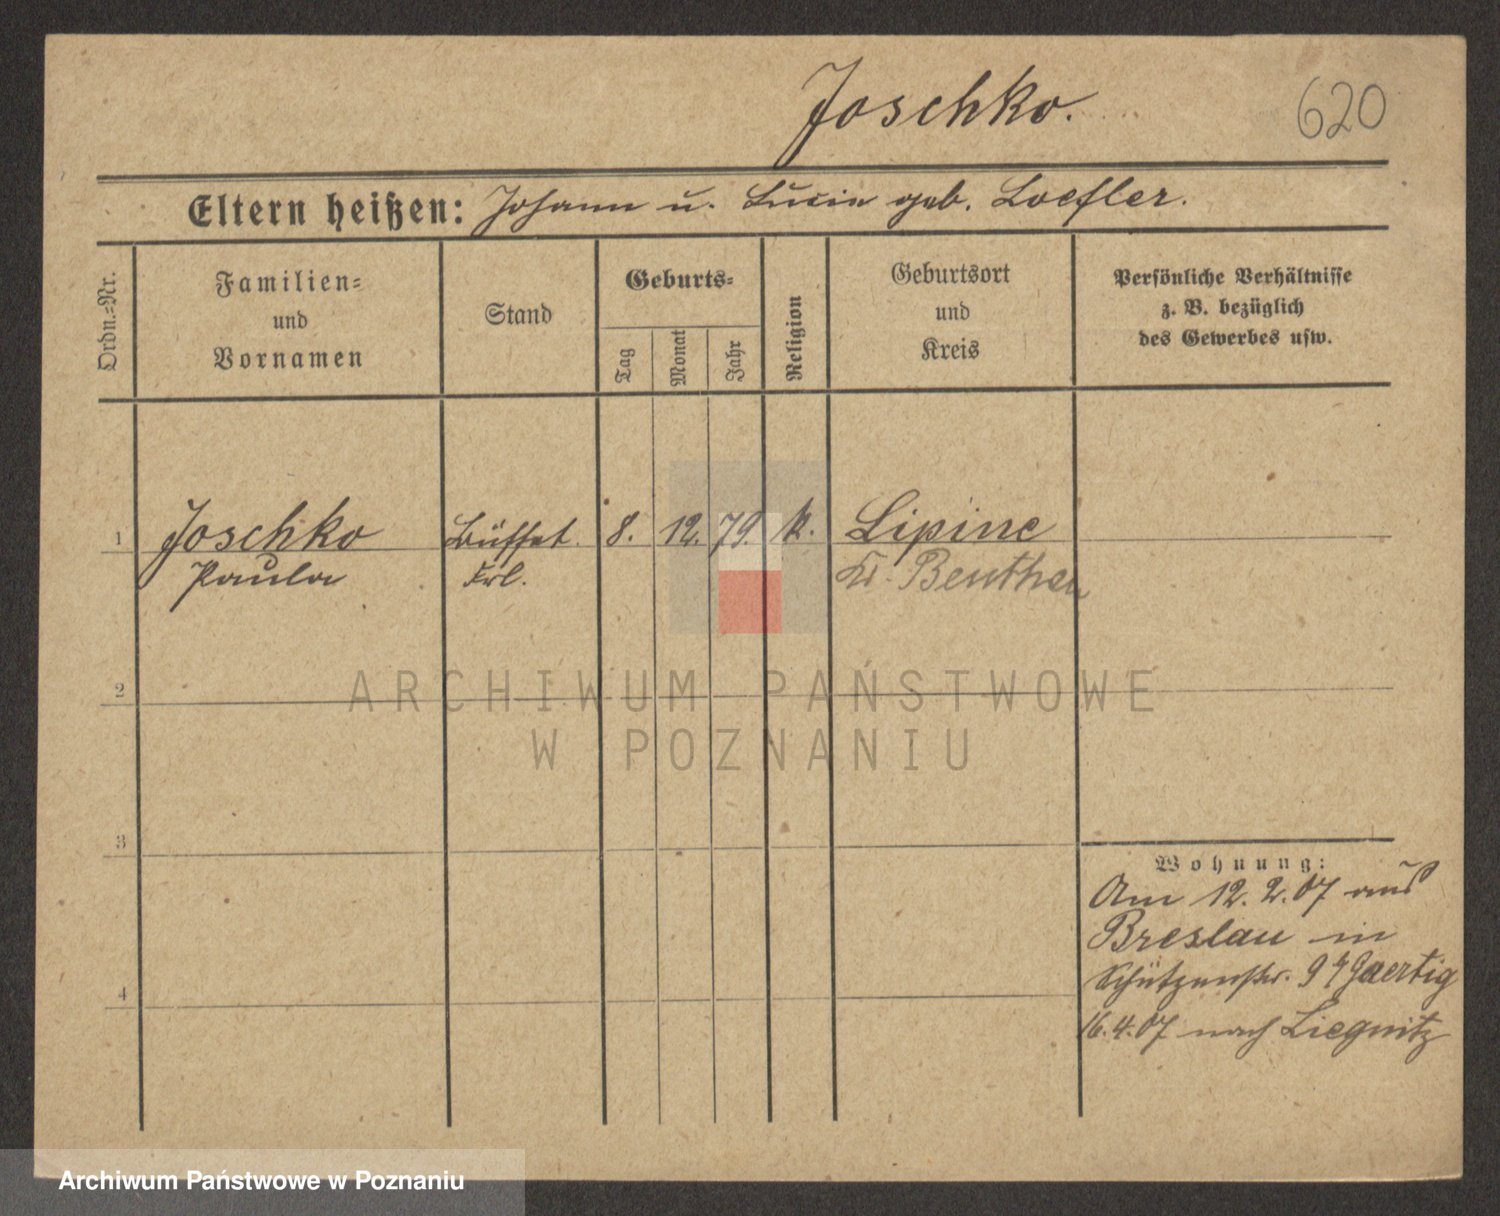 Joschko.
620
Eltern heißen: Johann u. Lucie geb. Loefler.
Ordn.-Nr.
Familien-
und
Vornamen
Stand
Geburts-
Tag
Monat
Jahr
Religion
Geburtsort
und
Kreis
Persönliche Verhältnisse
z. B. bezüglich
des Gewerbes usw.
1 Joschko Büffet. 8. 12. 79. k. Lipine
Paula Frl. Kr. Beuthen
2
3
4
Wohnung:
Am 12. 2. 07 aus
Breslau in
Schützenstr. 9 Gaertig
16. 4. 07 nach Liegnitz
ARCHIWUM PAŃSTWOWE
W POZNANIU
Archiwum Państwowe w Poznaniu